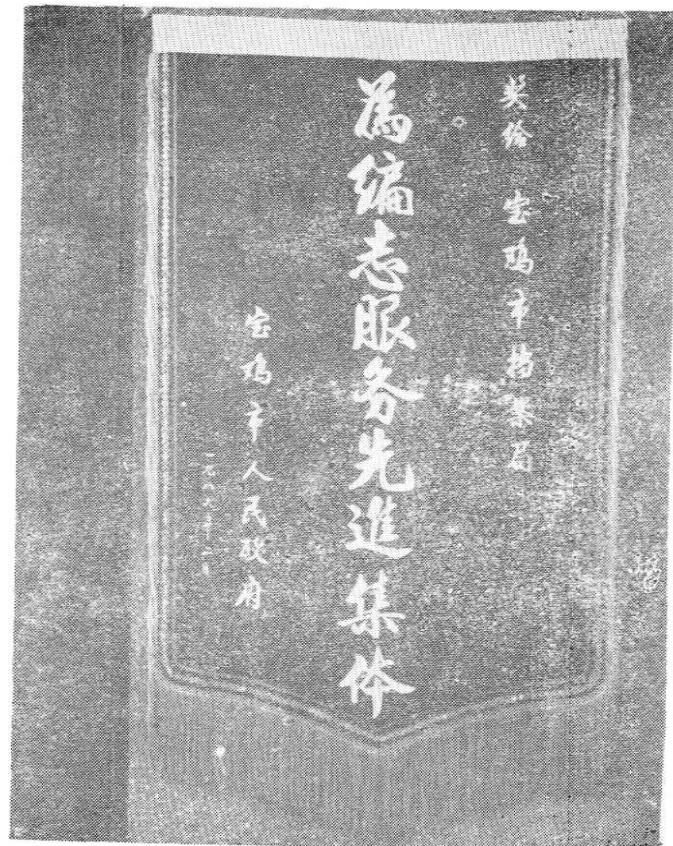 奖给 宝鸡市档案局
为编志服务先進集体
宝鸡市人民政府